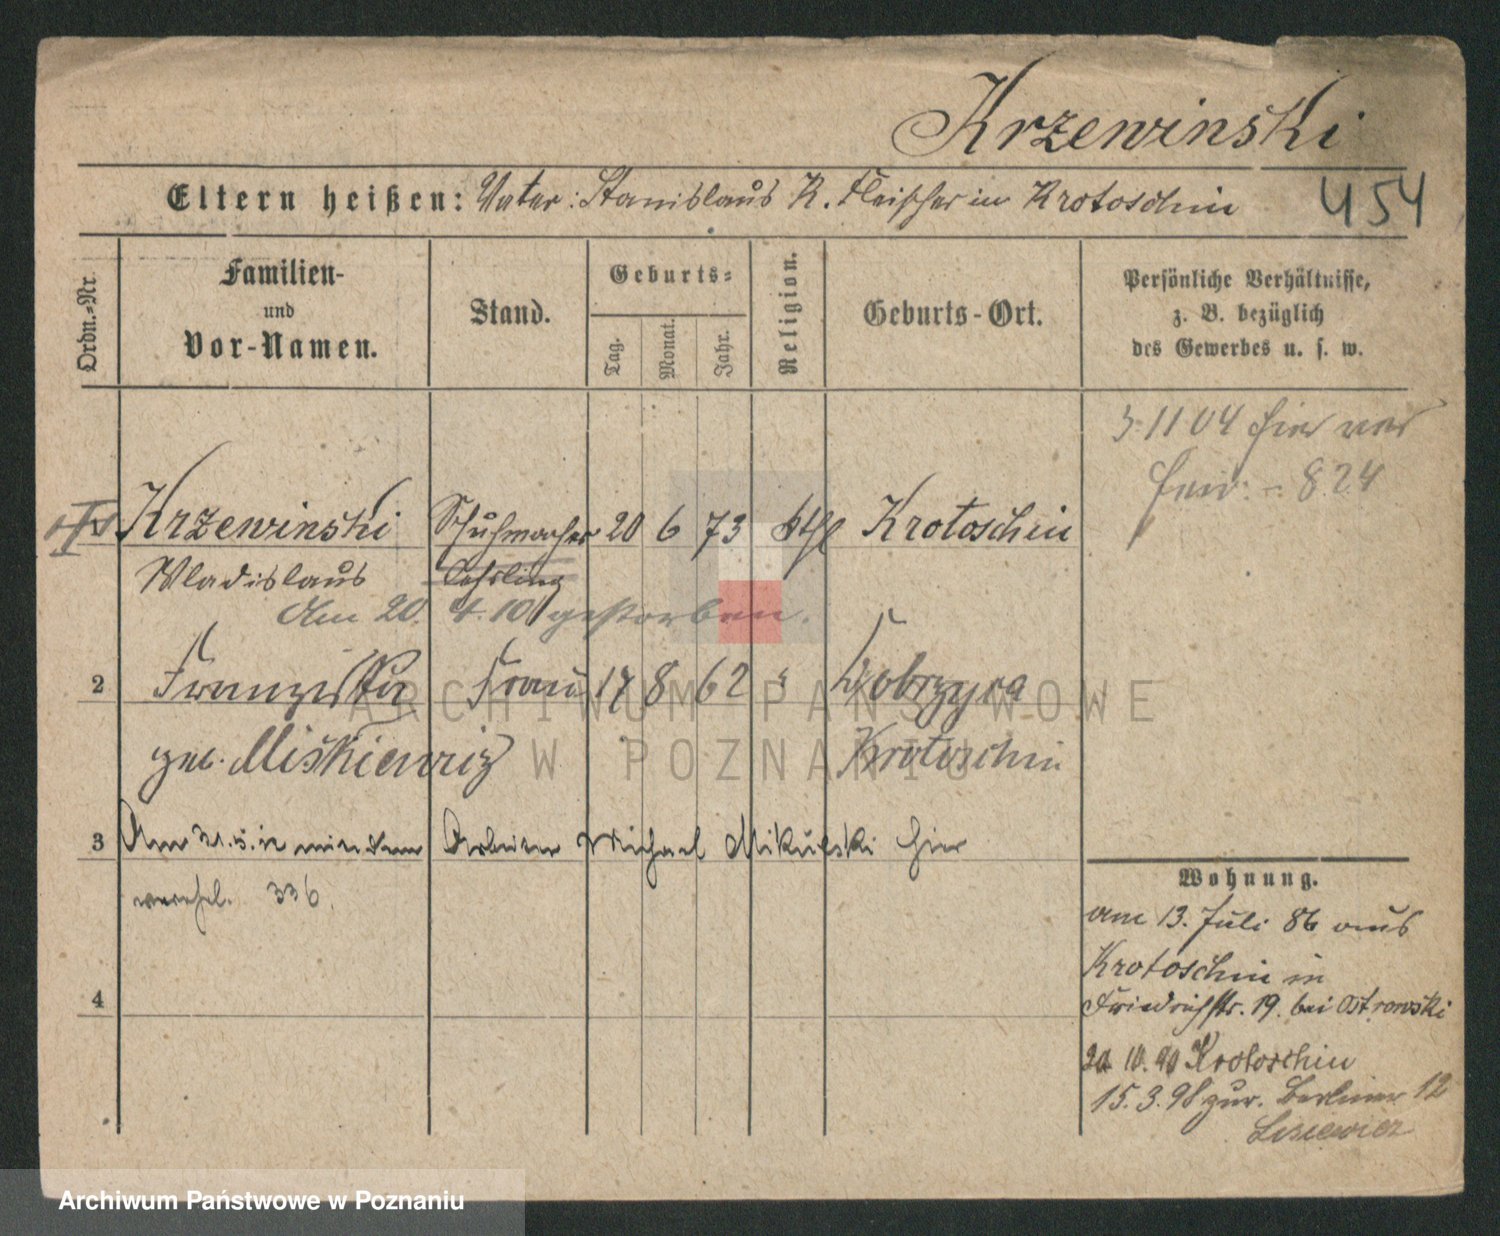 Krzewinski
Eltern heißen: Vater: Stanislaus K. Fleischer in Krotoschin 454
Ordn.-Nr.
Familien-
und
Vor-Namen.
Stand.
Geburts-
Tag.
Monat.
Jahr.
Religion.
Geburts-Ort.
Persönliche Verhältnisse,
z. B. bezüglich
des Gewerbes u. s. w.
3 11 04 hier
824
Krzewinski Schuhmacher 20 6 73 kth Krotoschin
Wladislaus Lehrling
Am 20. 4. 10 gestorben.
2 Franziska Frau 17 8 62 " Dobrzyca
geb. Miskiewicz Krotoschin
3 Am 21.5.12 mit dem Arbeiter Michael Mikulski hier
verehel. 336.
4
Wohnung.
am 13. Juli 86 aus
Krotoschin in
Friedrichstr. 19. bei Ostrowski
10. 90 Krotoschin
15. 3. 98 zur. Berliner 12
Lisiewicz
ARCHIWUM PAŃSTWOWE
W POZNANIU
Archiwum Państwowe w Poznaniu